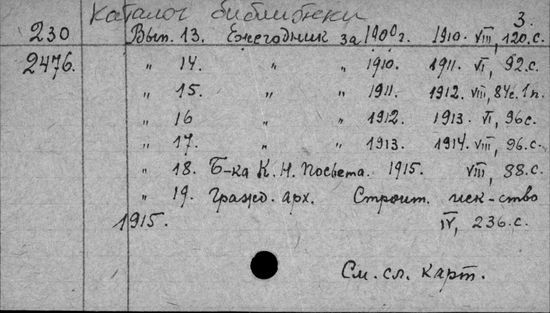 Каталог библиотеки 3.
230 Вып. 13. Ежегодник за 1909г. 1910. VIII, 120.с.
2476. „ 14. „ „ 1910. 1911. VI, 92.с.
„ 15. „ „ 1911. 1912. VIII, 84с. 1п.
„ 16 „ „ 1912. 1913. VI, 96с.
„ 17. „ „ 1913. 1914. VIII, 96.с.
„ 18. Б-ка К. Н. Посьета. 1915. VIII, 88.с.
„ 19. Гражд. арх. Строит. иск-ство
1915. IV, 236.с.
См. сл. карт.